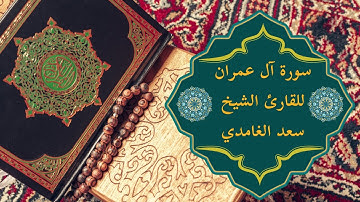 سورة آل عمران
للقارئ الشيخ
سعد الغامدي